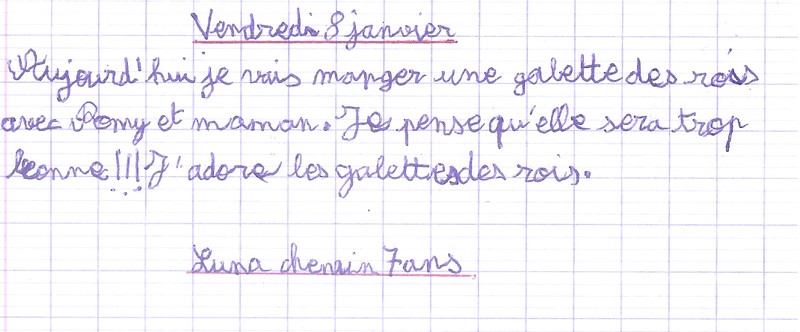 Vendredi 8 janvier
Aujourd'hui je vais manger une galette des rois
avec Romy et maman. Je pense qu'elle sera trop
bonne!!! J'adore les galettes des rois.
Luna chemin 7 ans